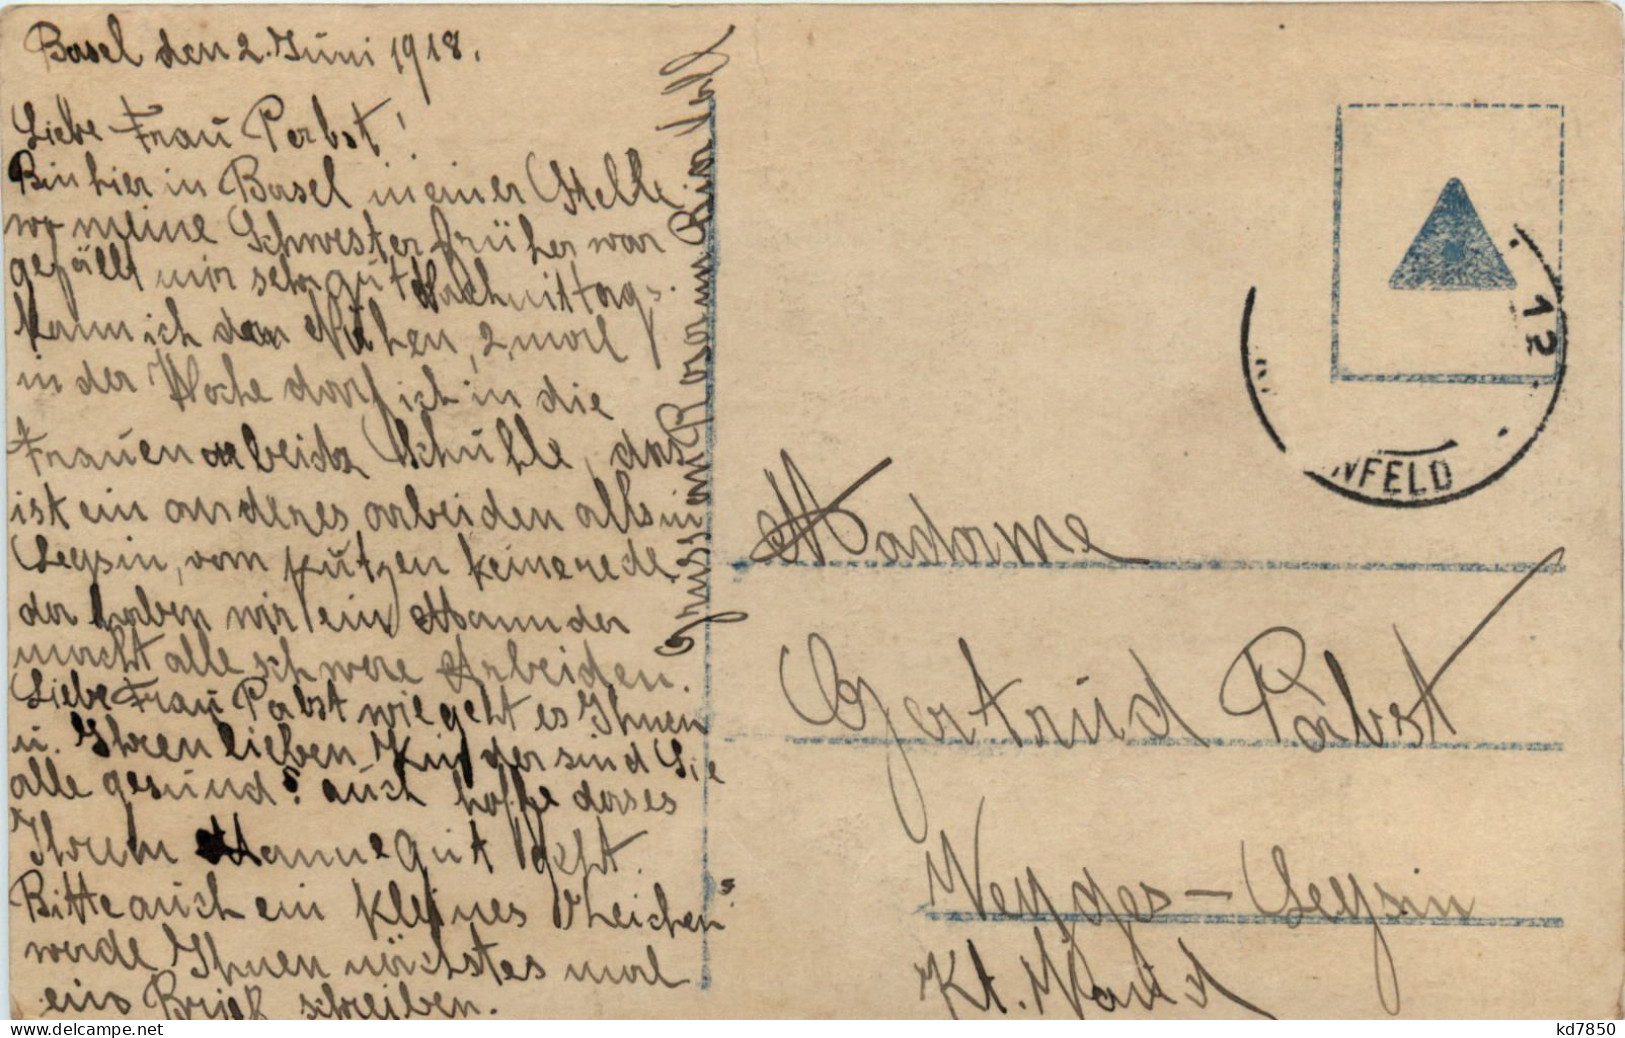 Basel den 2. Juni 1918.
Liebe Frau Perbst!
Bin hier in Basel in einer Stelle
wo meine Schwester früher war
gefällt mir sehr gut Nachmittags.
kann ich dan Nähen, 2 mal
in der Woche darf ich in die
Frauenarbeitz Schuhle, das
ist ein anderes arbeiden alls in
Leysin, vom putzen keine rede
da haben wir ein Mann der
macht alle schwere Arbeiden.
Liebe Frau Pabst wie geht es Ihnen
u. Ihren lieben Kinder sind Sie
alle gesund? auch hoffe dases
Ihrem Manne gut geht.
Bitte auch ein kleines
werde Ihnen nächstes mal
eins Brief schreiben.
NFELD
12
Madame
Gertrud Pabst
Veyges - Leysin
Kt. Vaud
kd7850